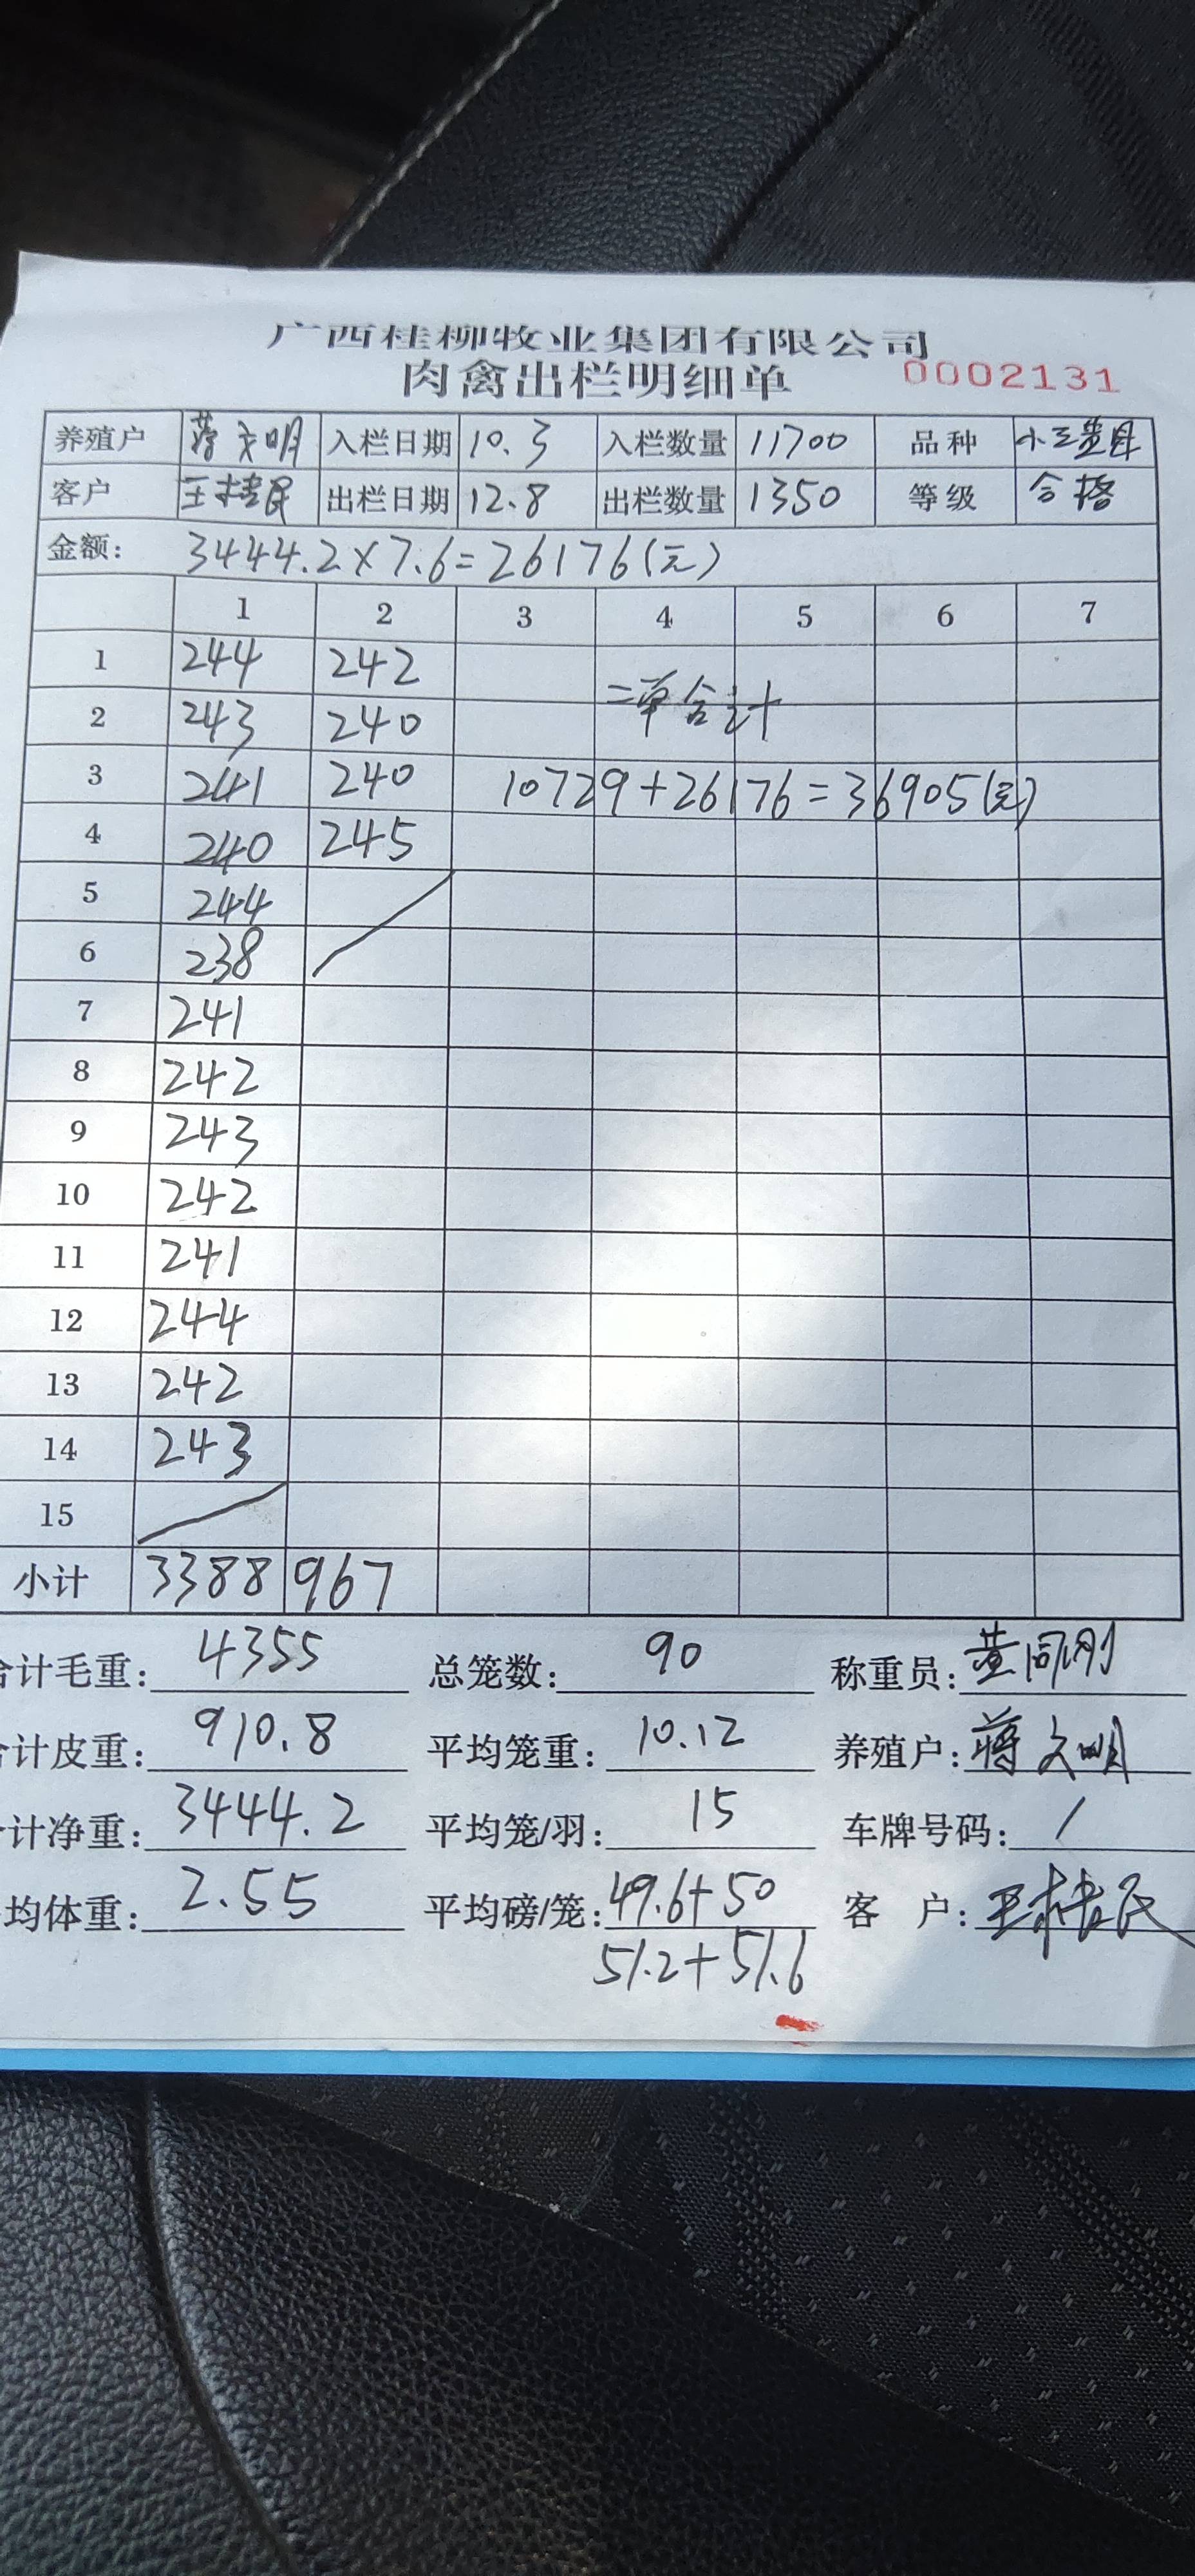 广西桂柳牧业集团有限公司
肉禽出栏明细单 0002131
养殖户 蒋文明 入栏日期 10.3 入栏数量 11700 品种 小三黄母
客户 王桂民 出栏日期 12.8 出栏数量 1350 等级 合格
金额: 3444.2×7.6=26176(元)
1 2 3 4 5 6 7
1 244 242
二单合计
2 243 240
3 241 240 10729+26176=36905(元)
4 240 245
5 244
6 238
7 241
8 242
9 243
10 242
11 241
12 244
13 242
14 243
15
小计 3388 967
合计毛重: 4355 总笼数: 90 称重员: 黄同刚
计皮重: 910.8 平均笼重: 10.12 养殖户: 蒋文明
计净重: 3444.2 平均笼/羽: 15 车牌号码: /
均体重: 2.55 平均磅/笼: 49.6+50 客 户: 王桂民
51.2+51.6